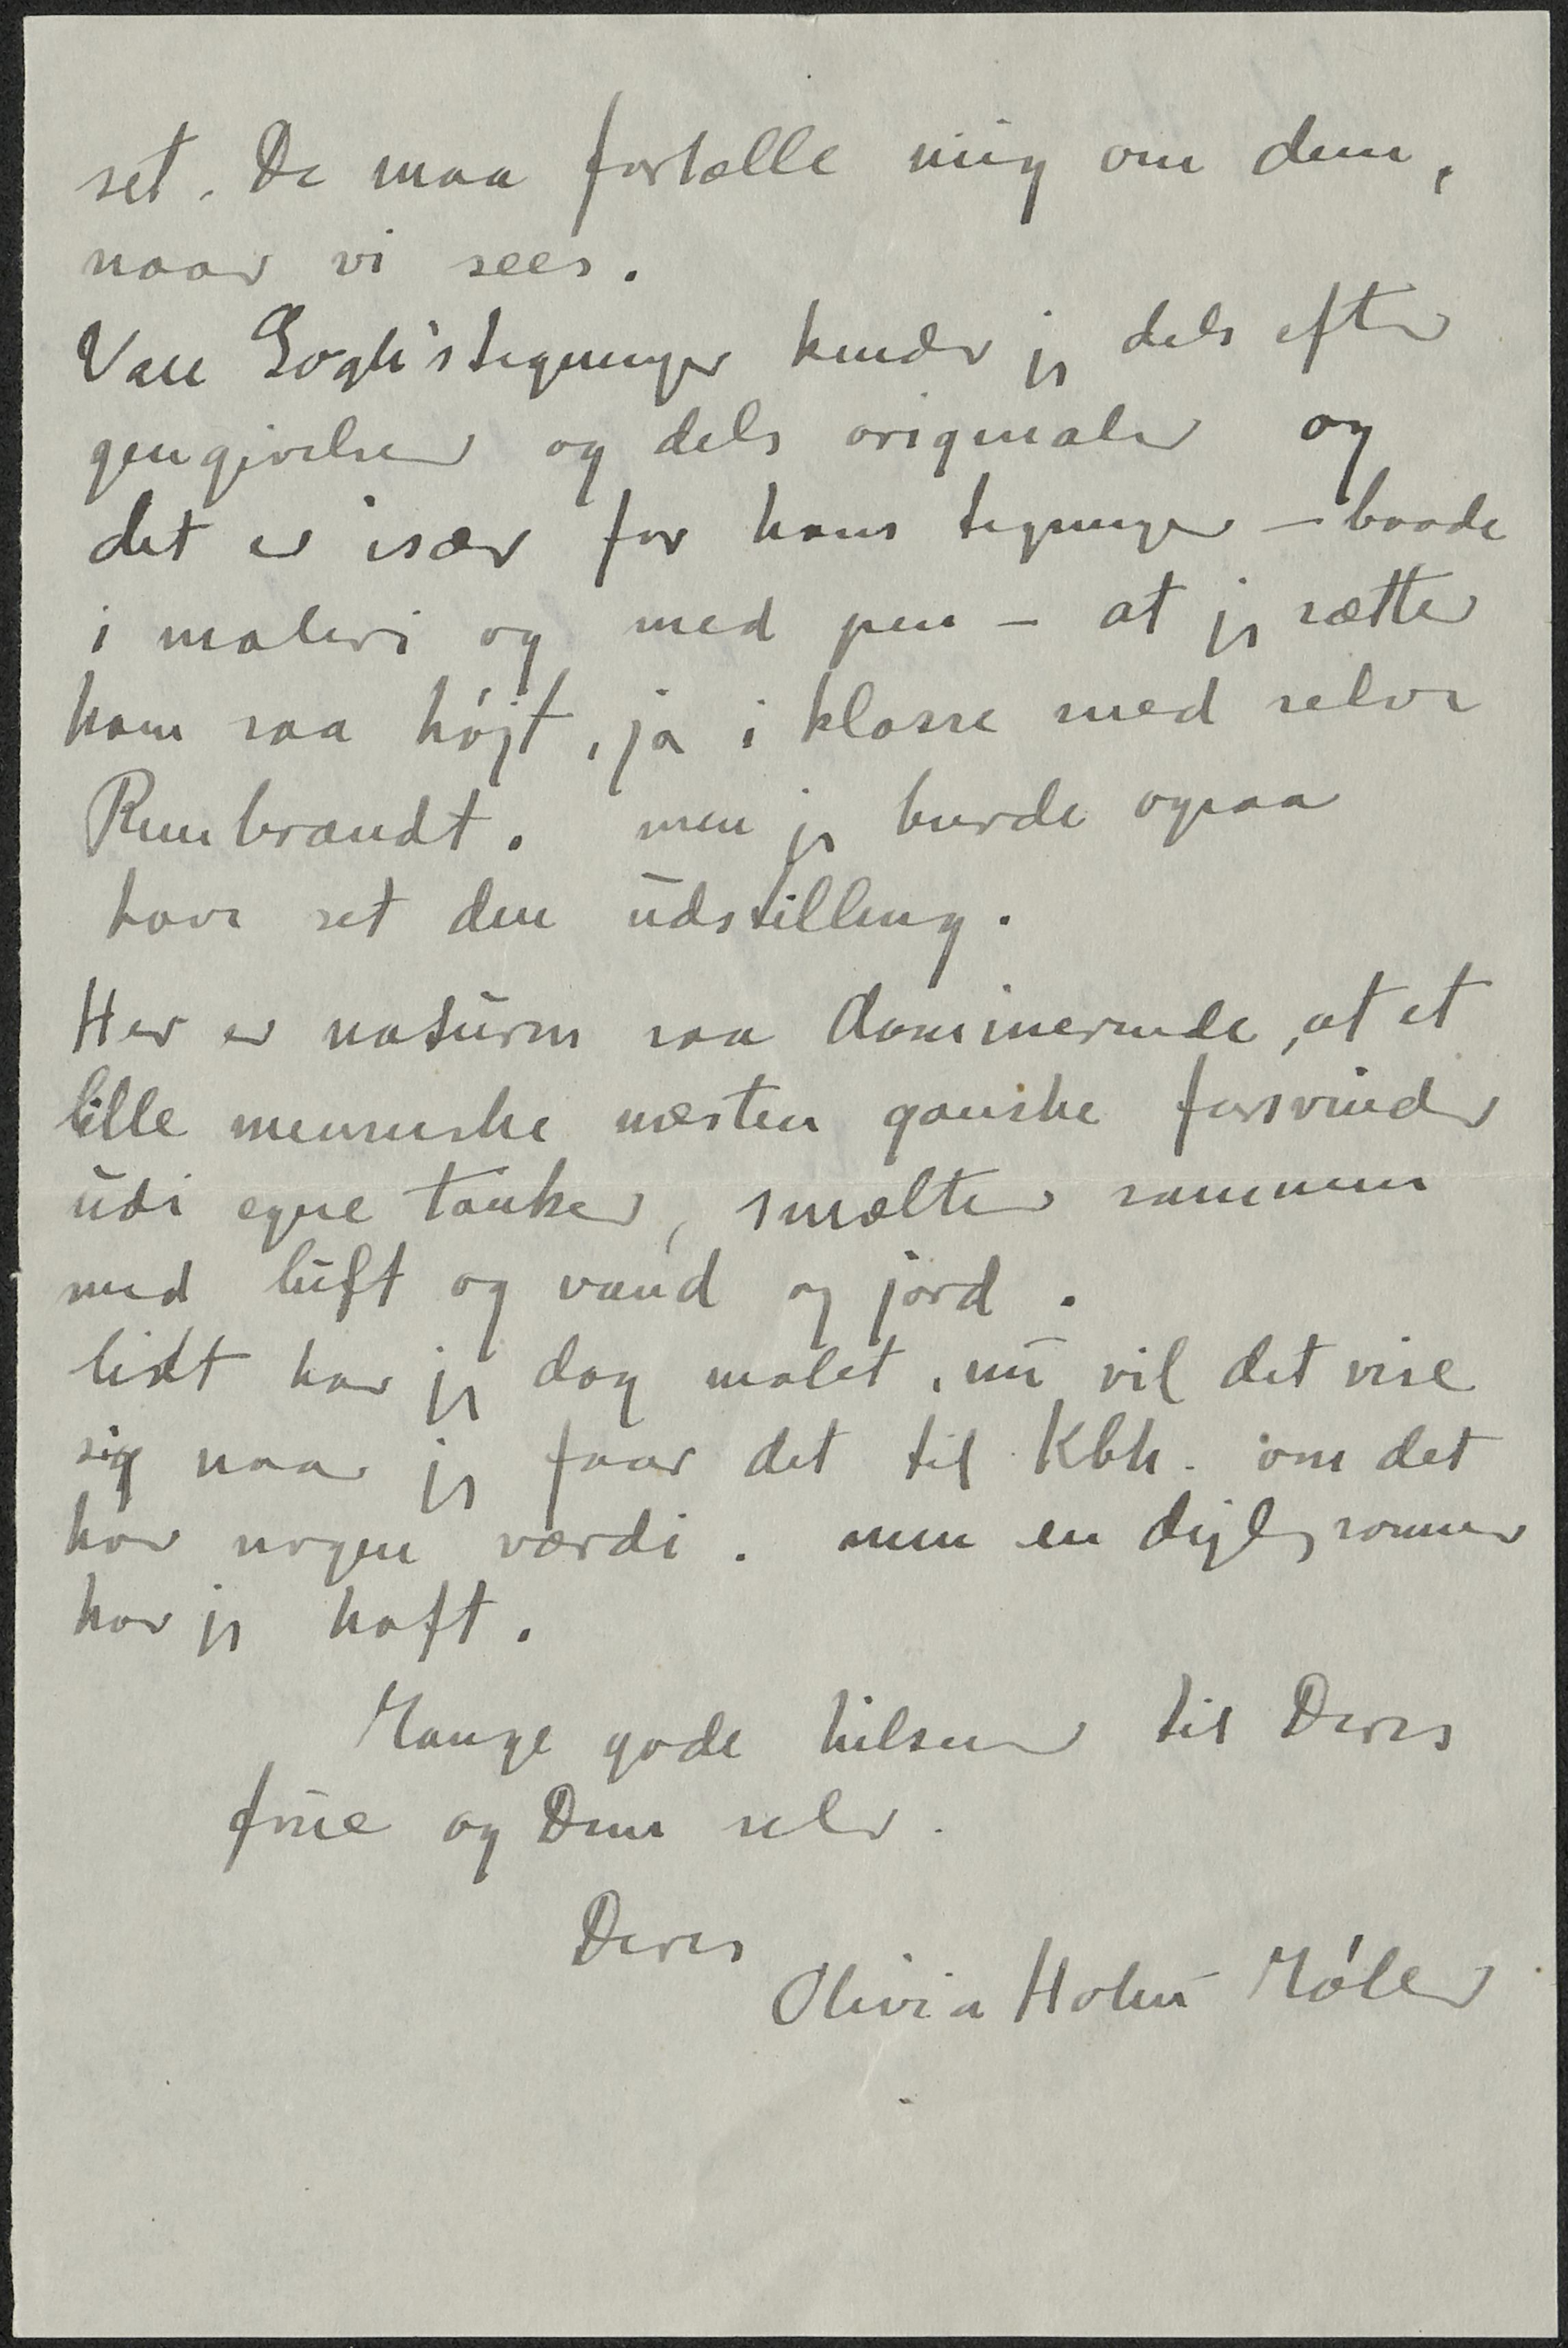 set. De maa fortælle mig om dem,
naar vi sees.
Van Gogh's tegninger kender jeg dels efter
gengivelser og dels originaler og
det er især for hans tegninger – baade
i maleri og med pen – at jeg sætter
ham saa højt, ja i klasse med selve
Rembrandt. men jeg burde ogsaa
have set den udstilling.
Her er naturen saa dominerende, at et
lille menneske næsten ganske forsvinder
udi egne tanker, smelter sammen
med luft og vand og jord.
lidt har jeg dog malet, nu vil det vise
sig naar jeg faar det til Kbh. om det
har nogen værdi. men en dejlig sommer
har jeg haft.
Mange gode hilsener til Deres
frue og Dem selv.
Deres
Olivia Holm Møller